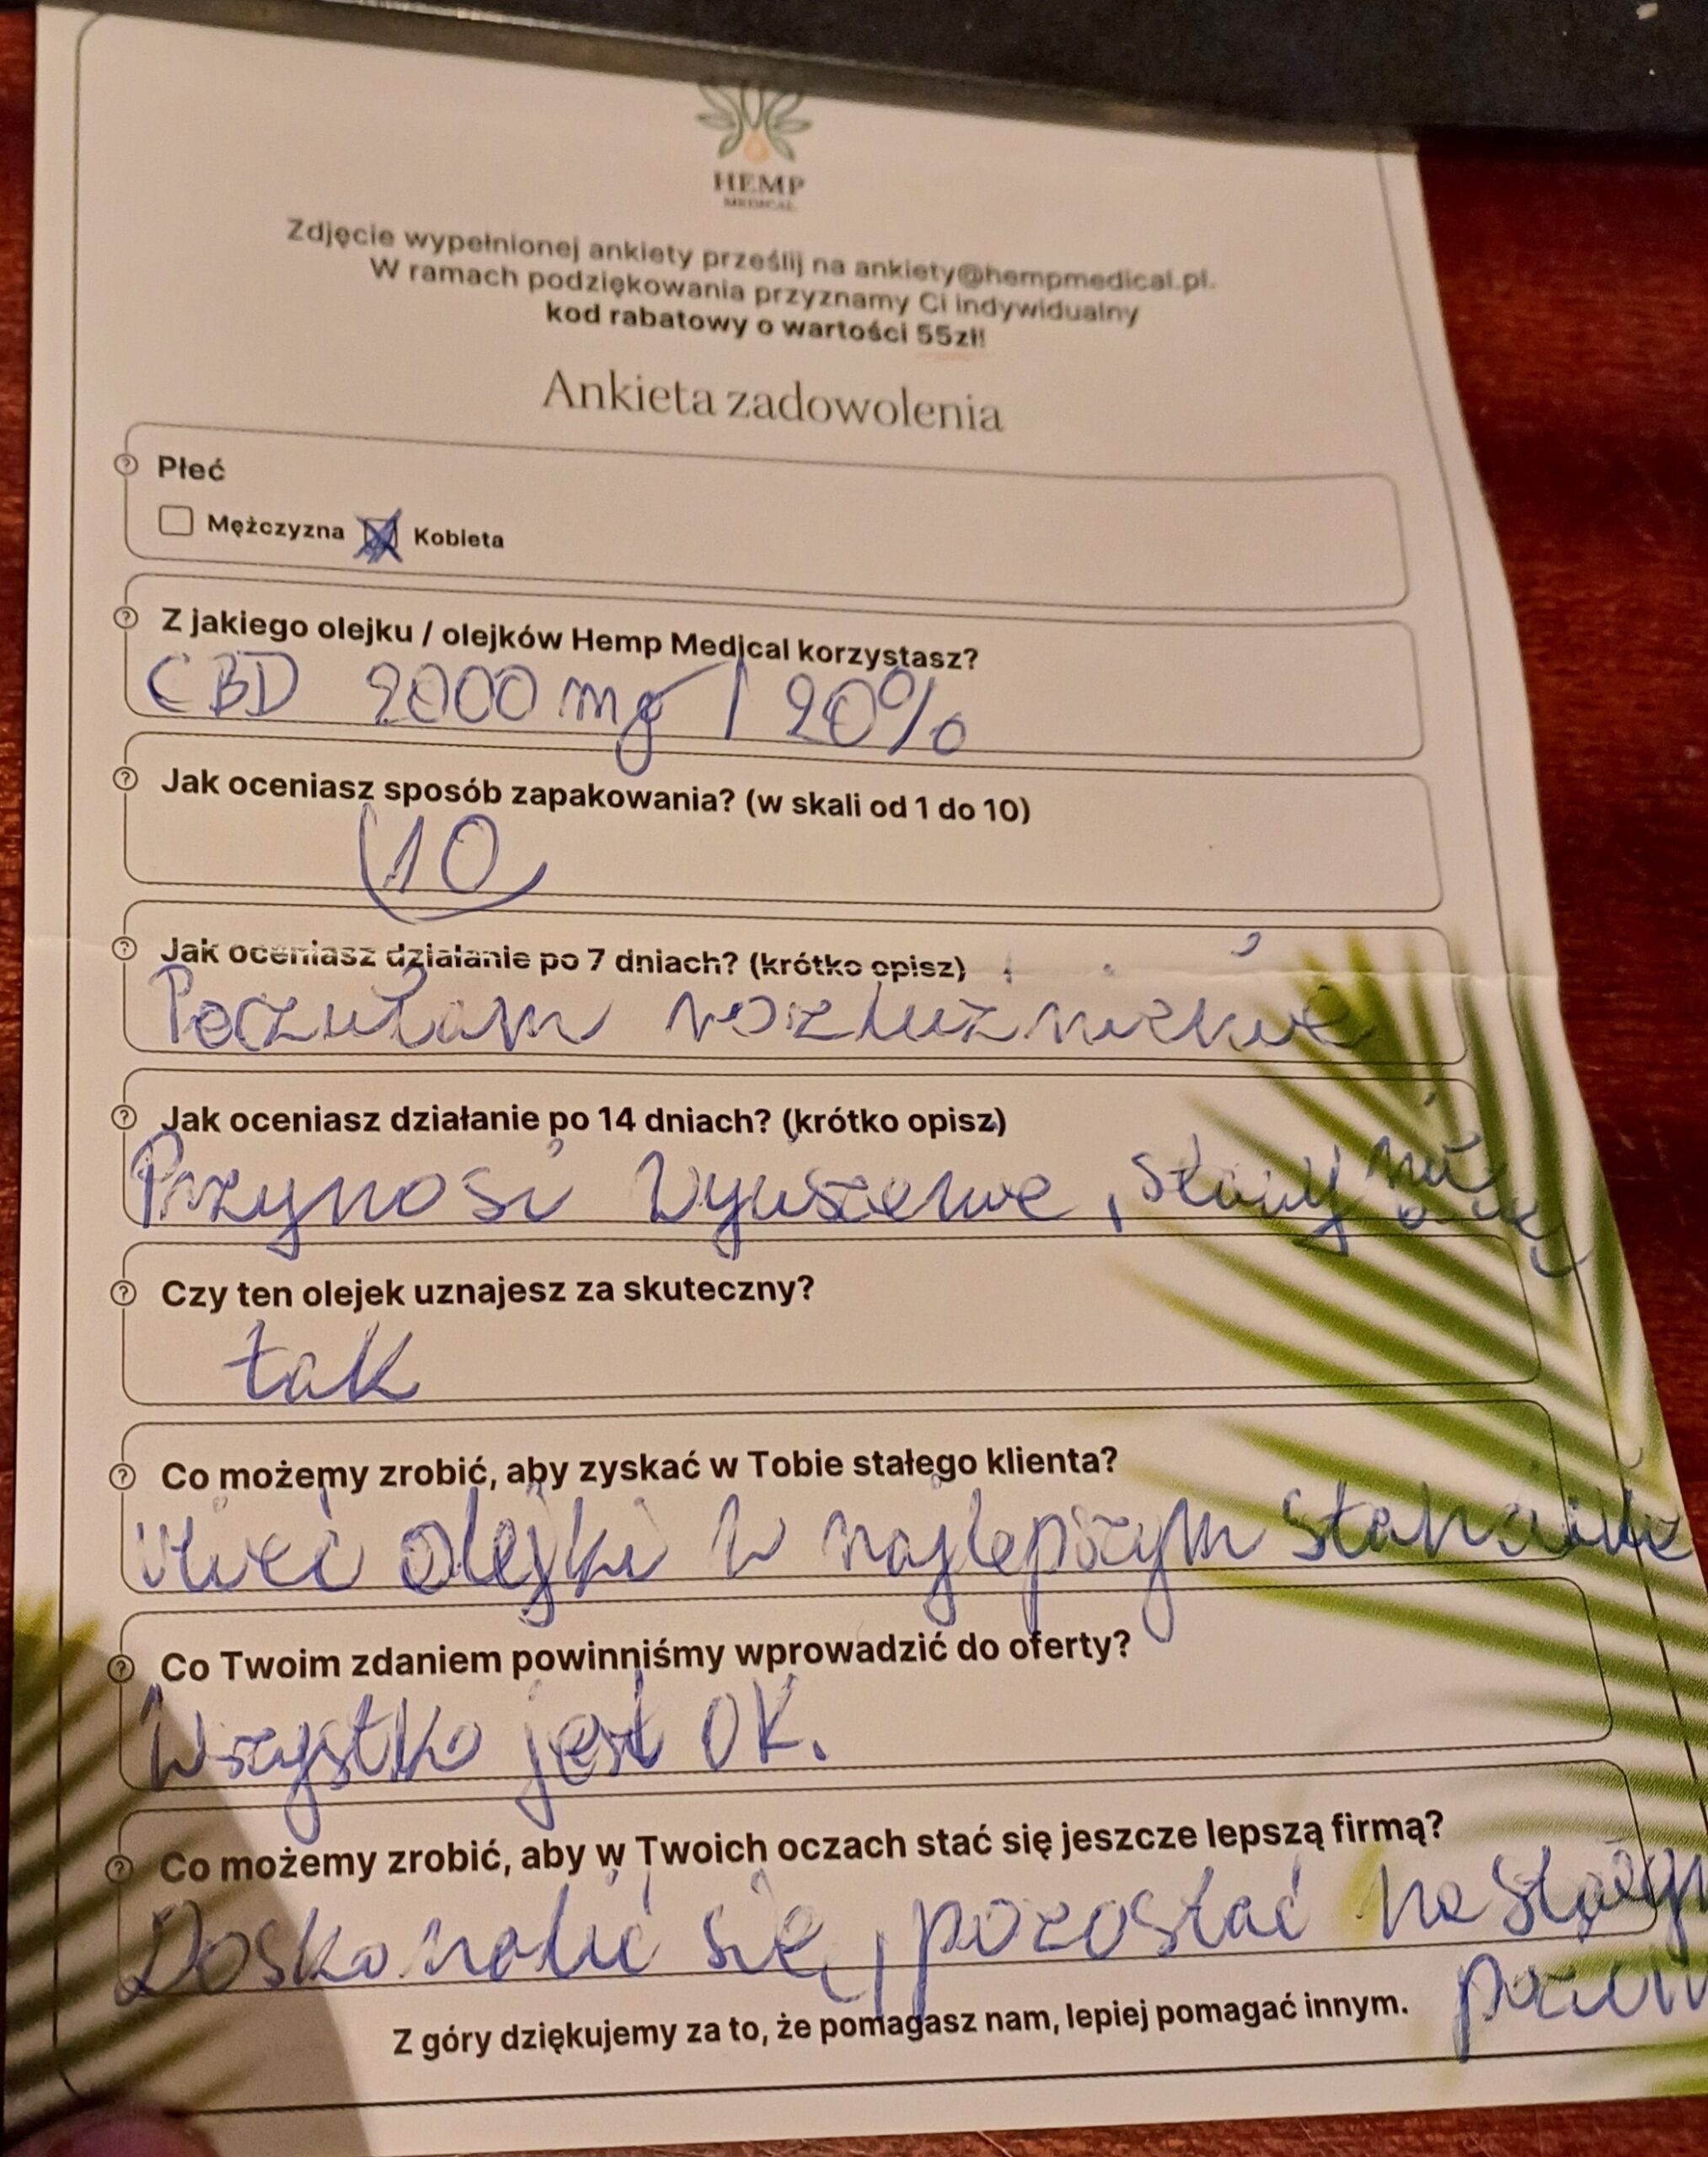 HEMP
MEDICAL
Zdjęcie wypełnionej ankiety prześlij na ankiety@hempmedical.pl.
W ramach podziękowania przyznamy Ci indywidualny
kod rabatowy o wartości 55zł!
Ankieta zadowolenia
Płeć
Mężczyzna Kobieta
Z jakiego olejku / olejków Hemp Medical korzystasz?
CBD 2000 mg / 20%
Jak oceniasz sposób zapakowania? (w skali od 1 do 10)
10
Jak oceniasz działanie po 7 dniach? (krótko opisz)
Poczułam rozluźnienie
Jak oceniasz działanie po 14 dniach? (krótko opisz)
Przynosi wyciszenie, stany
Czy ten olejek uznajesz za skuteczny?
tak
Co możemy zrobić, aby zyskać w Tobie stałego klienta?
mieć olejki w najlepszym
Co Twoim zdaniem powinniśmy wprowadzić do oferty?
Wszystko jest OK.
Co możemy zrobić, aby w Twoich oczach stać się jeszcze lepszą firmą?
Doskonalić się, pozostać na
Z góry dziękujemy za to, że pomagasz nam, lepiej pomagać innym.